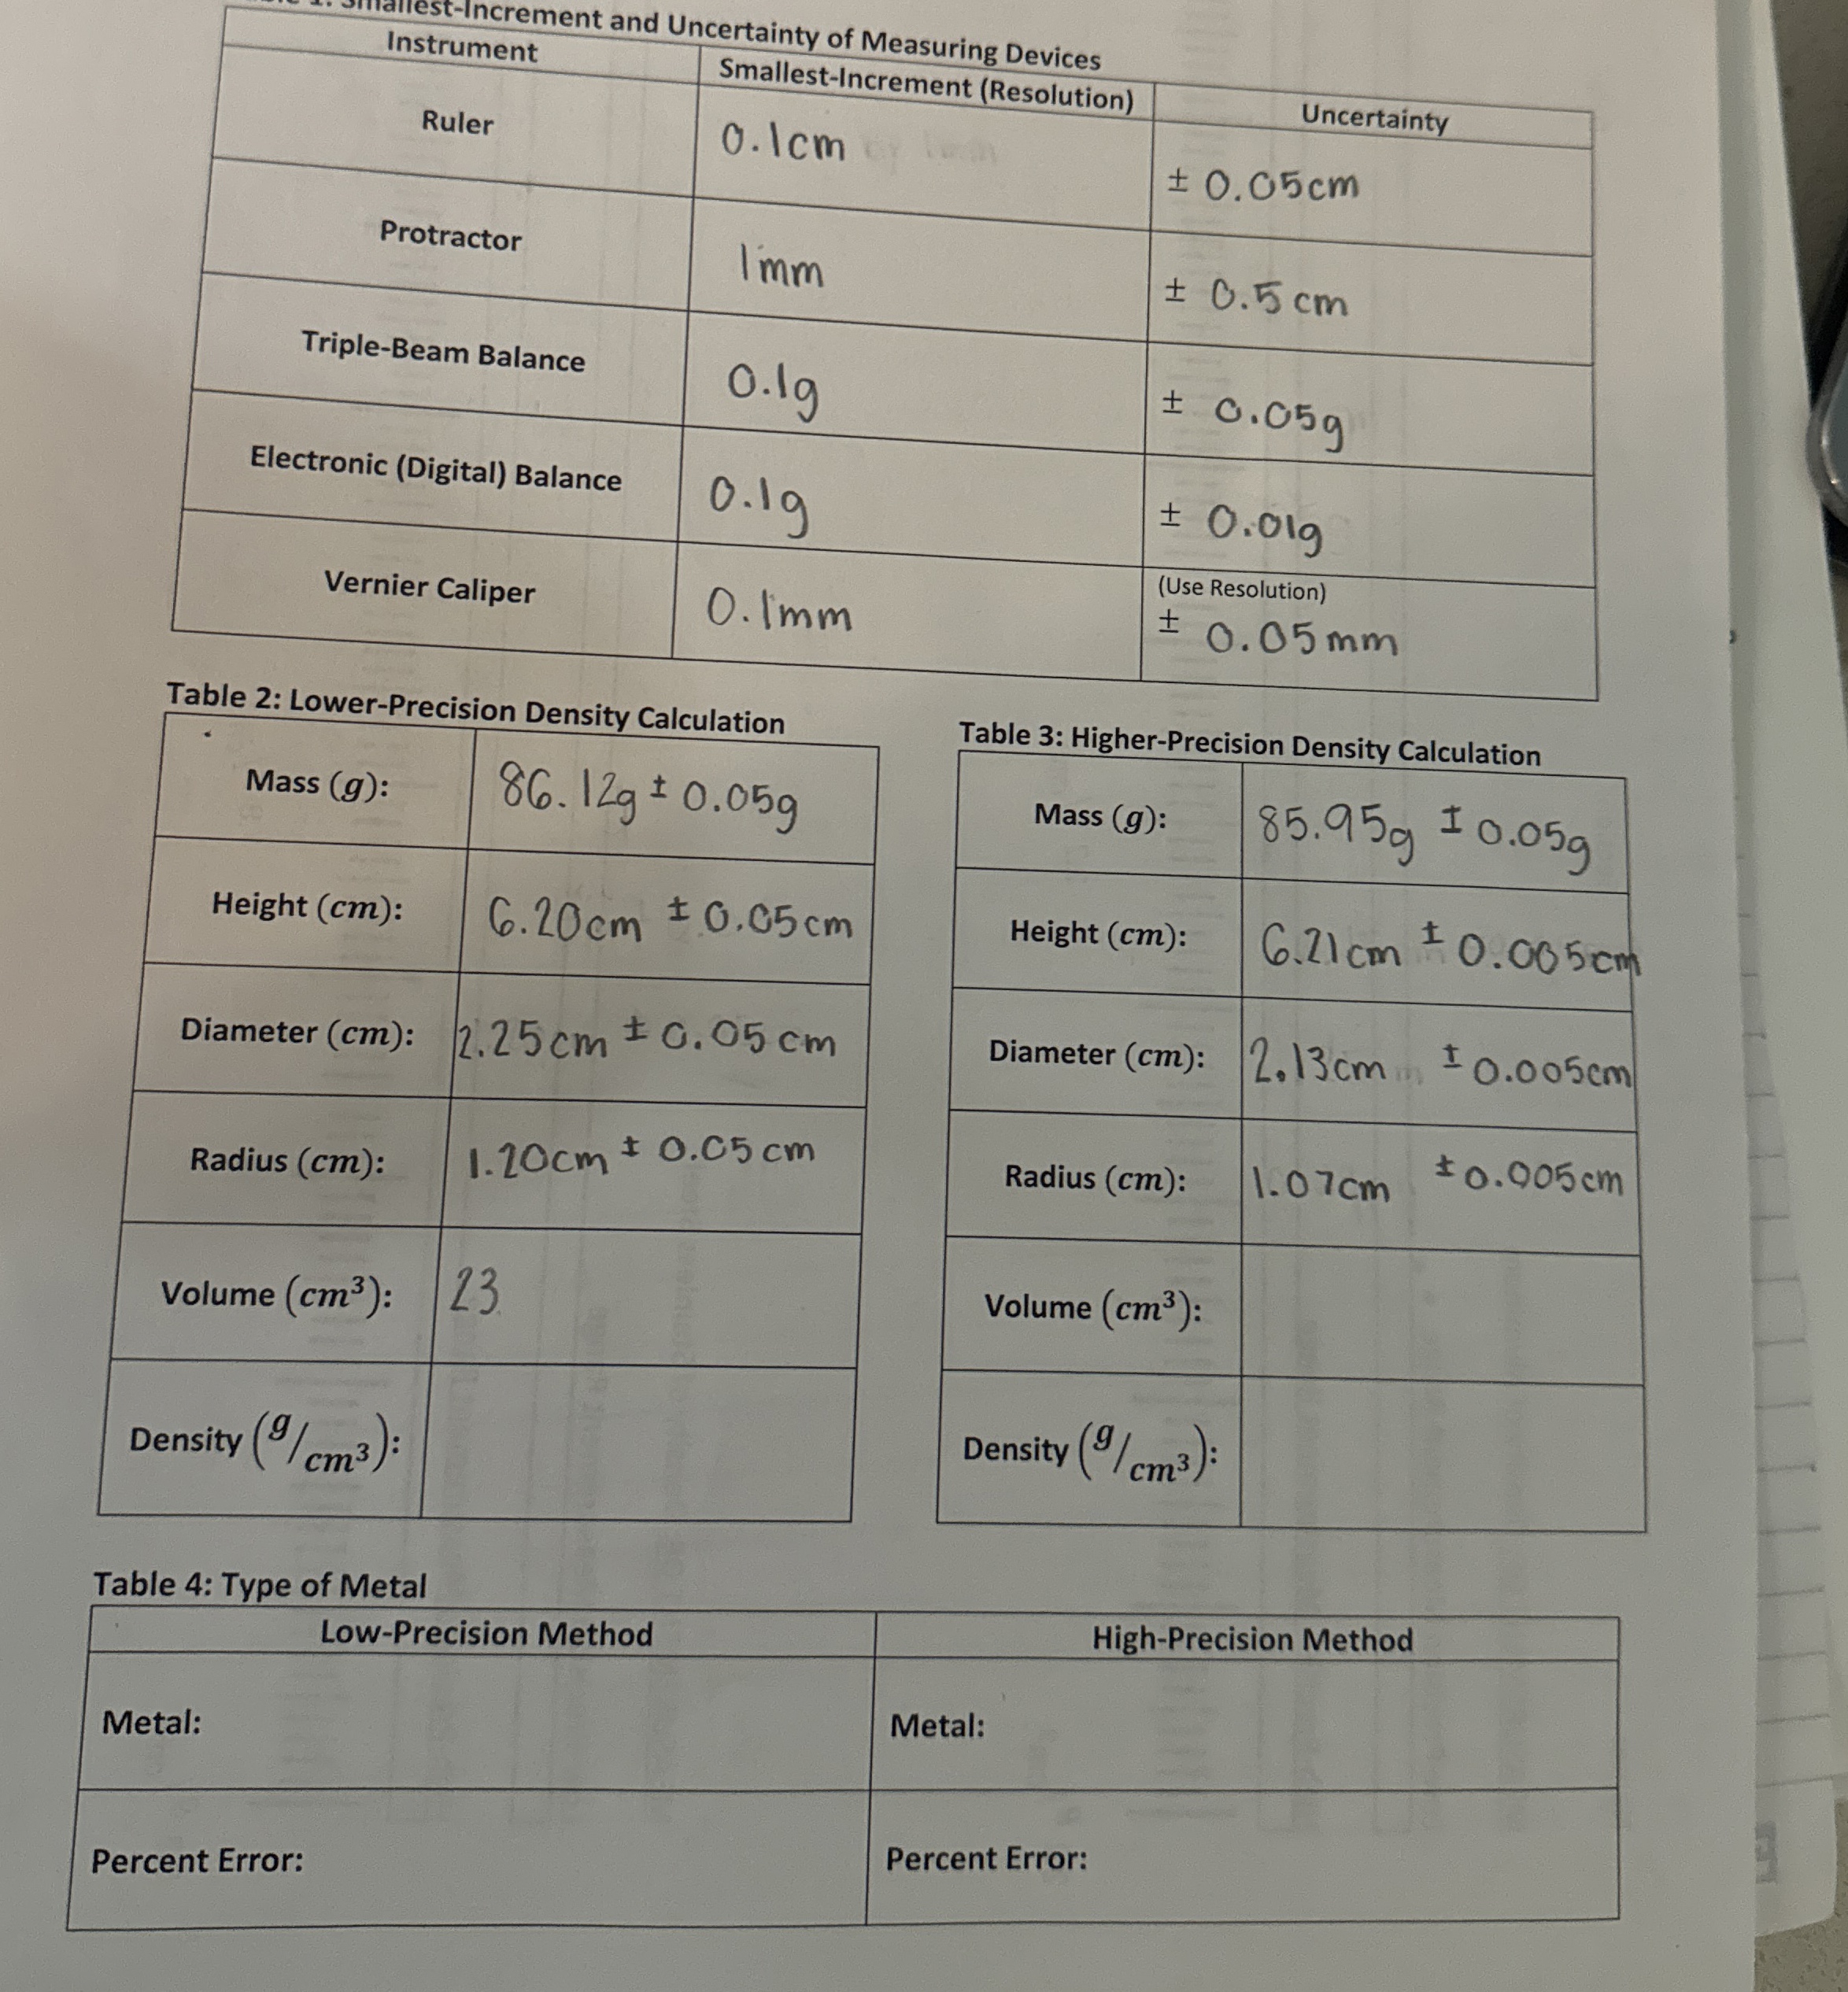 1: Smallest-Increment and Uncertainty of Measuring Devices
Instrument Smallest-Increment (Resolution) Uncertainty
Ruler 0.1cm ± 0.05cm
Protractor 1mm ± 0.5cm
Triple-Beam Balance 0.1g ± 0.05g
Electronic (Digital) Balance 0.1g ± 0.01g
Vernier Caliper 0.1mm (Use Resolution)
± 0.05mm
Table 2: Lower-Precision Density Calculation
Mass (g): 86.12g ± 0.05g
Height (cm): 6.20cm ± 0.05cm
Diameter (cm): 2.25cm ± 0.05cm
Radius (cm): 1.20cm ± 0.05cm
Volume (cm³): 23
Density (g/cm³):
Table 3: Higher-Precision Density Calculation
Mass (g): 85.95g ± 0.05g
Height (cm): 6.21cm ± 0.005cm
Diameter (cm): 2.13cm ± 0.005cm
Radius (cm): 1.07cm ± 0.005cm
Volume (cm³):
Density (g/cm³):
Table 4: Type of Metal
Low-Precision Method High-Precision Method
Metal: Metal:
Percent Error: Percent Error: